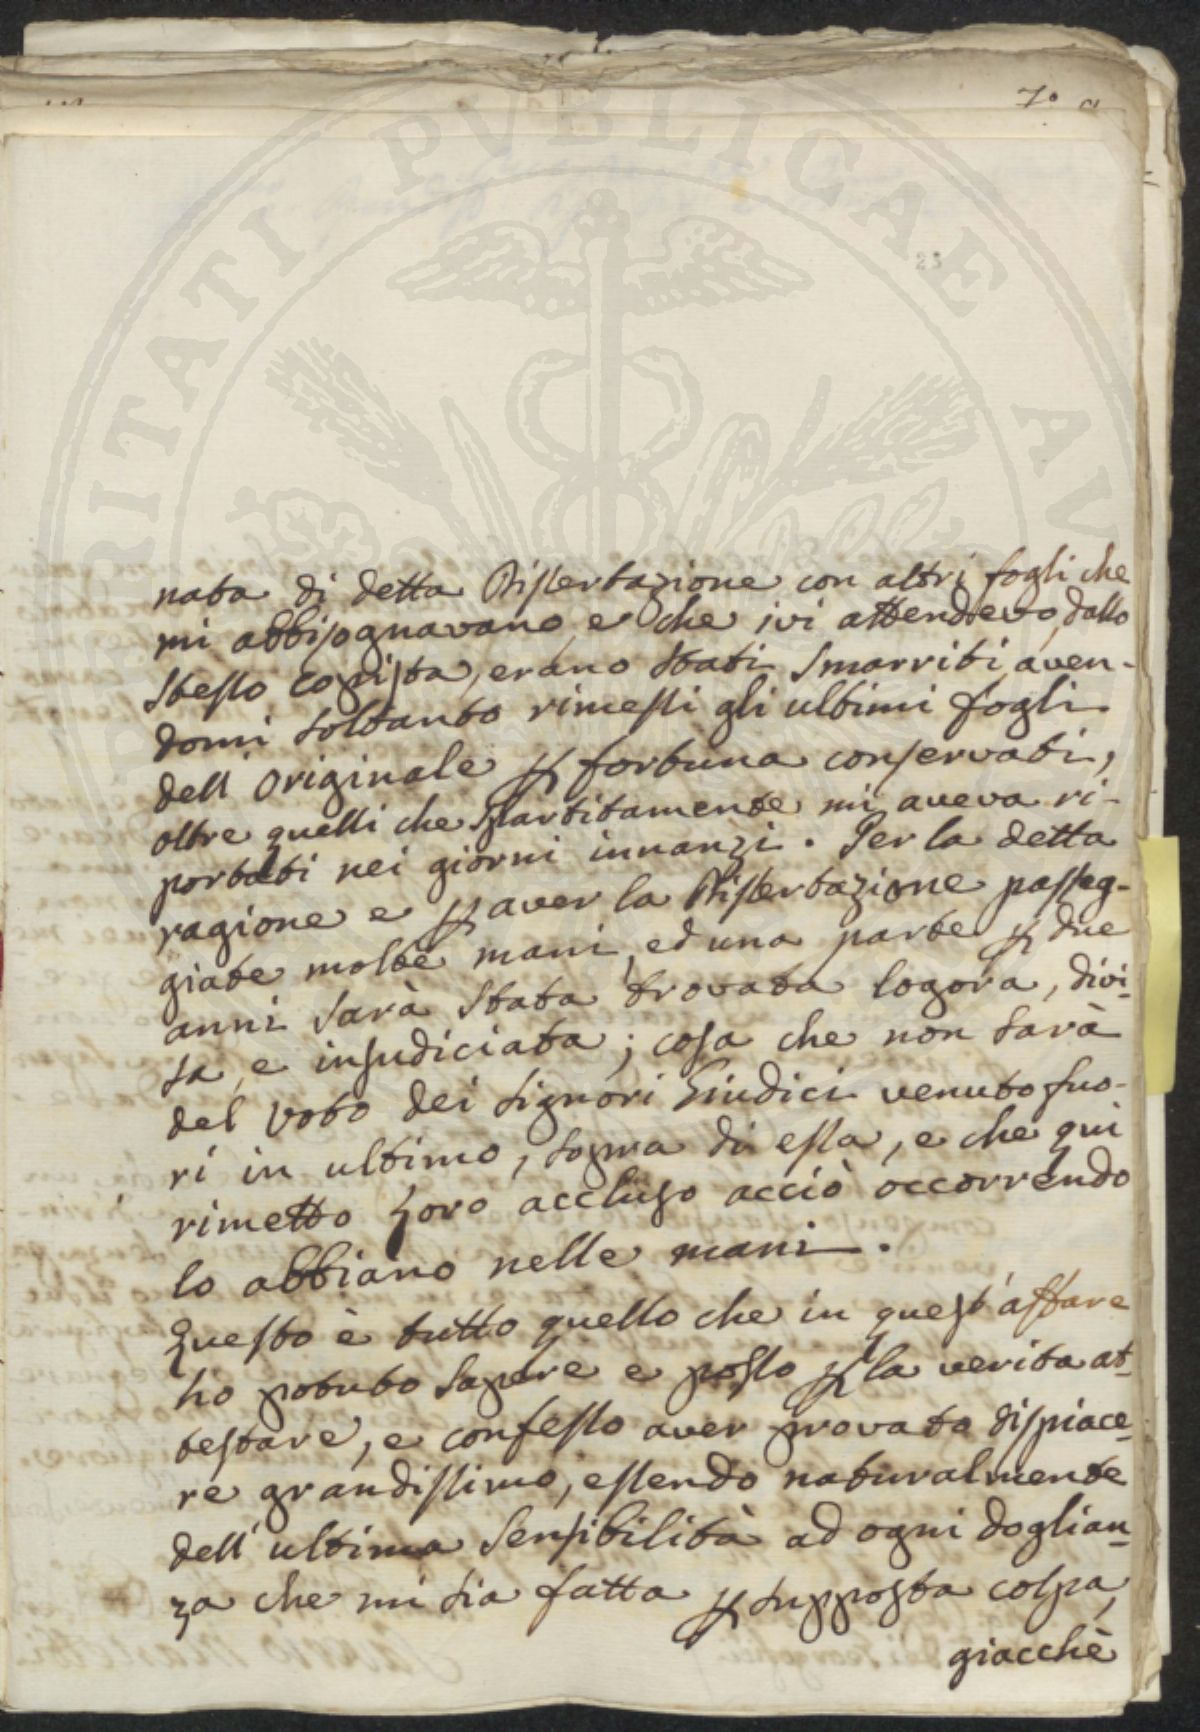 PROSPERITATI PVBLICAE AV
7° a
23
nata di detta Dissertazione con altri fogli che
mi abbisognavano, e che ivi attendevo, dallo
stesso copista, erano stati smarriti aven-
domi soltanto rimessi gli ultimi fogli
dell'originale ꝑ fortuna conservati,
oltre quelli che spartitamente mi aveva ri-
portati nei giorni innanzi. Per la detta
ragione e ꝑ aver la Dissertazione passeg-
giate molte mani, ed una parte ꝑ due
anni sarà stata trovata logora, divi-
sa, e insudiciata; cosa che non sarà
del voto dei Signori Giudici venuto fuo-
ri in ultimo, sopra di essa, e che qui
rimetto Loro accluso acciò occorrendo
lo abbiano nelle mani.
Questo è tutto quello che in quest'affare
ho potuto sapere e posso ꝑ la verita at-
testare, e confesso aver provato dispiace-
re grandissimo, essendo naturalmente
dell'ultima sensibilità ad ogni doglian-
za che mi sia fatta ꝑ supposta colpa,
giacchè